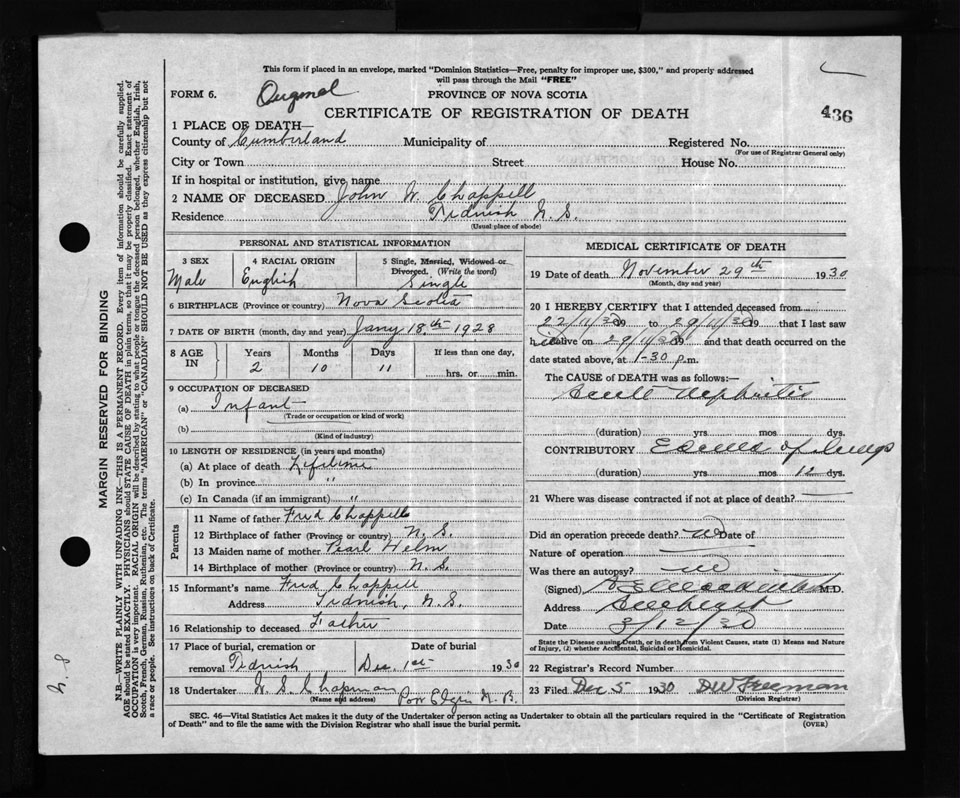 This form if placed in an envelope, marked "Dominion Statistics—Free, penalty for improper use, $300," and properly addressed
will pass through the Mail "FREE"
FORM 6. Original
PROVINCE OF NOVA SCOTIA
CERTIFICATE OF REGISTRATION OF DEATH
436
1 PLACE OF DEATH—
County of Cumberland Municipality of Registered No.
(For use of Registrar General only)
City or Town Street House No.
If in hospital or institution, give name
2 NAME OF DECEASED John W. Chappell
Residence Tidnish N.S.
(Usual place of abode)
PERSONAL AND STATISTICAL INFORMATION
3 SEX 4 RACIAL ORIGIN 5 Single, Married, Widowed or
Divorced. (Write the word)
Male English Single
6 BIRTHPLACE (Province or country) Nova Scotia
7 DATE OF BIRTH (month, day and year) Jany 18th 1928
8 AGE IN Years Months Days If less than one day,
2 10 11 hrs. or min.
9 OCCUPATION OF DECEASED
(a) Infant
(Trade or occupation or kind of work)
(b)
(Kind of industry)
10 LENGTH OF RESIDENCE (in years and months)
(a) At place of death Lifetime
(b) In province "
(c) In Canada (if an immigrant) "
Parents
11 Name of father Fred Chappell
12 Birthplace of father (Province or country) N.S.
13 Maiden name of mother Pearl Helm
14 Birthplace of mother (Province or country) N.S.
15 Informant's name Fred Chappell
Address Tidnish, N.S.
16 Relationship to deceased Father
17 Place of burial, cremation or Date of burial
removal Tidnish Dec. 1st 1930
18 Undertaker W. S. Chapman
(Name and address) Port Elgin N.B.
MEDICAL CERTIFICATE OF DEATH
19 Date of death November 29th 1930
(Month, day and year)
20 I HEREBY CERTIFY that I attended deceased from
22/11/30 19 to 29/11/30 19 that I last saw
h alive on 29/11/30 19 and that death occurred on the
date stated above, at 1-30 p.m.
The CAUSE of DEATH was as follows:—
Acute Nephritis
(duration) yrs. mos. dys.
CONTRIBUTORY Edema of Lungs
(duration) yrs. mos 12 dys.
21 Where was disease contracted if not at place of death?
Did an operation precede death? no Date of
Nature of operation
Was there an autopsy? no
(Signed) M.D.
Address Amherst
Date 3/12/30
State the Disease causing Death, or in death from Violent Causes, state (1) Means and Nature
of Injury, (2) whether Accidental, Suicidal or Homicidal.
22 Registrar's Record Number
23 Filed Dec 5 1930 DW Freeman
(Division Registrar)
SEC. 46—Vital Statistics Act makes it the duty of the Undertaker or person acting as Undertaker to obtain all the particulars required in the "Certificate of Registration
of Death" and to file the same with the Division Registrar who shall issue the burial permit.
(OVER)
MARGIN RESERVED FOR BINDING
N.B.—WRITE PLAINLY WITH UNFADING INK—THIS IS A PERMANENT RECORD. Every item of information should be carefully supplied.
AGE should be stated EXACTLY. PHYSICIANS should STATE CAUSE OF DEATH in plain terms, so that it may be properly classified. Exact statement of
OCCUPATION is very important. RACIAL ORIGIN will be described by stating to what people or tongue the deceased person belonged, whether English, Irish,
Scotch, French, German, Russian, Ruthenian, etc. The terms "AMERICAN" or "CANADIAN" SHOULD NOT BE USED as they express citizenship but not
a race or people. See instructions on back of Certificate.